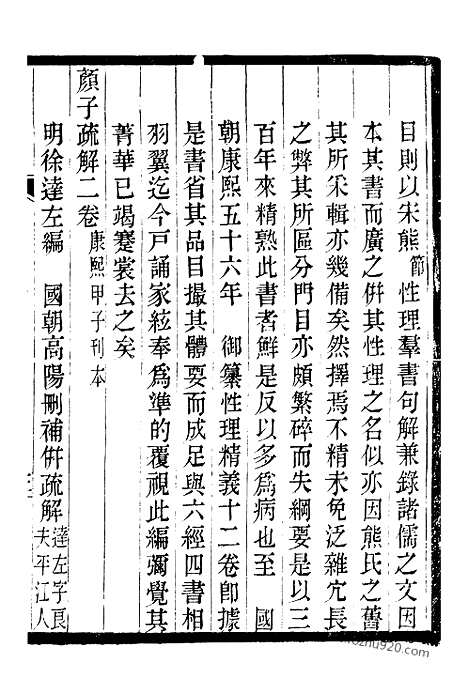 目則以宋熊節性理羣書句解兼錄諸儒之文因
本其書而廣之倂其性理之名似亦因熊氏之舊
其所采輯亦幾備矣然擇焉不精未免泛雜宂長
之弊其所區分門目亦頗繁碎而失綱要是以三
百年來精熟此書者鮮是反以多爲病也至　國
朝康熙五十六年　御纂性理精義十二卷卽據
是書省其品目撮其體要而成足與六經四書相
羽翼迄今戸誦家絃奉爲準的覆視此編彌覺其
菁華已竭蹇裳去之矣
顏子疏解二卷康熙甲子刊本
明徐達左編　國朝高陽刪補倂疏解達左字良
夫平江人
mozhu920.com